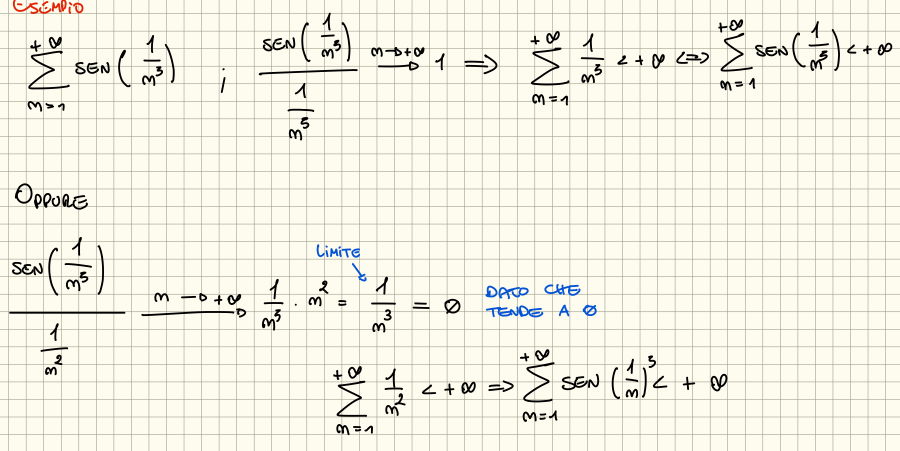 ESEMPIO
+∞ ∑ m=1 SEN(1/m⁵) ; SEN(1/m⁵) / (1/m⁵) m→+∞ 1 ⇒ +∞ ∑ m=1 1/m⁵ < +∞ ⇔ +∞ ∑ m=1 SEN(1/m⁵) < +∞
OPPURE
LIMITE
SEN(1/m⁵) / (1/m²) m→+∞ 1/m⁵ · m² = 1/m³ = 0 DATO CHE
TENDE A 0
+∞ ∑ m=1 1/m² < +∞ ⇒ +∞ ∑ m=1 SEN(1/m)³ < +∞